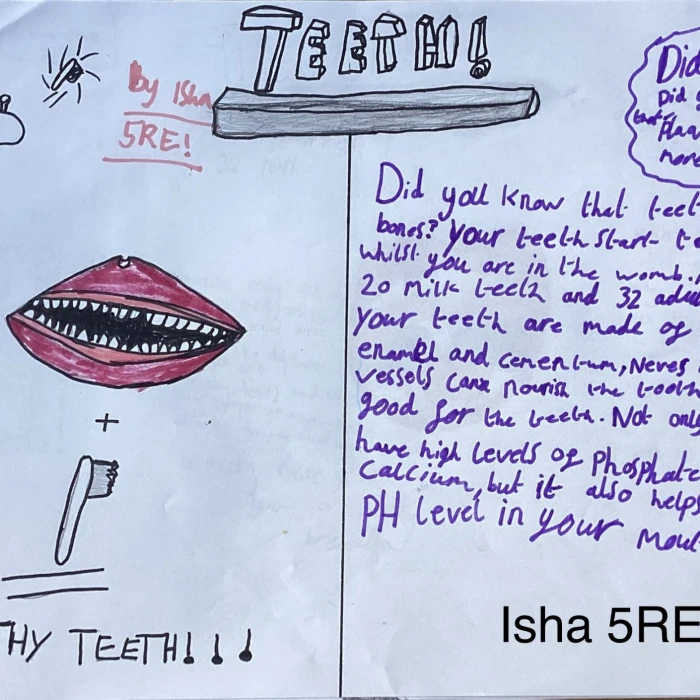 TEETH!
by Isha
5RE!
THY TEETH!!!
Did
Did
that
more
Did you know that teet
bones? Your teeth start to
whilst you are in the womb.
20 milk teeth and 32 adu
your teeth are made of
enamel and cementum, Neves
vessels can nourish the tooth
good for the teeth. Not only
have high levels of phosphate
calcium, but it also helps
PH level in your mou
Isha 5RE